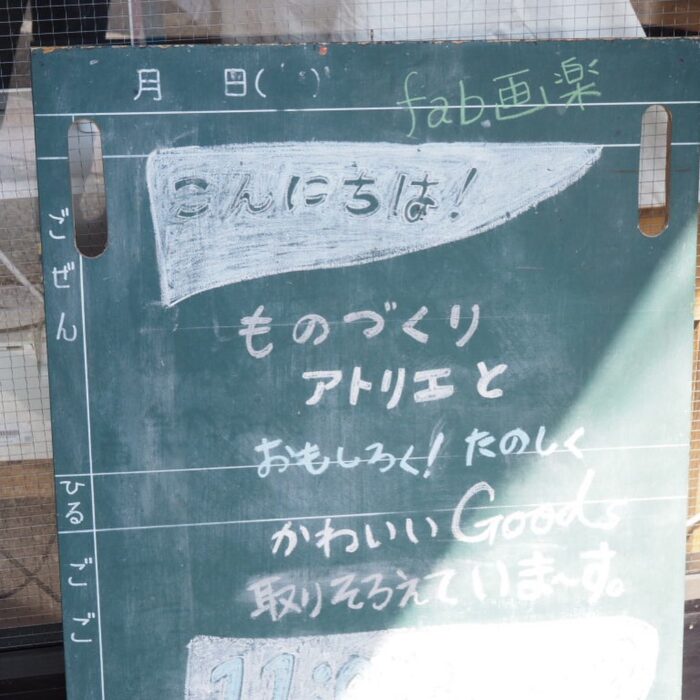 月 日( )
fab画楽
こんにちは!
ごぜん
ものづくり
アトリエと
おもしろく! たのしく
ひる
かわいいGoods
ごご
取りそろえていま〜す。